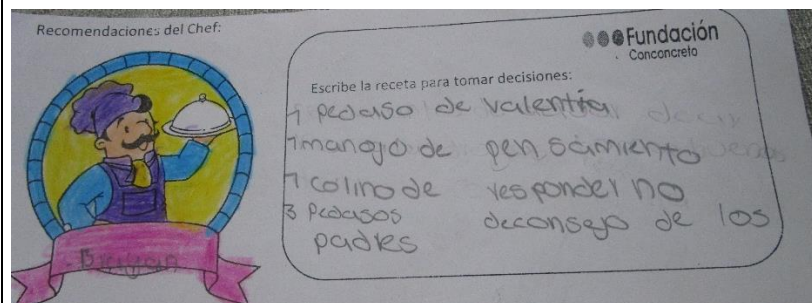 Recomendaciones del Chef:
Fundación
Conconcreto
Escribe la receta para tomar decisiones:
1 pedaso de valentía
1 manojo de pensamiento
1 colino de responder no
3 Pedasos deconsejo de los
padres